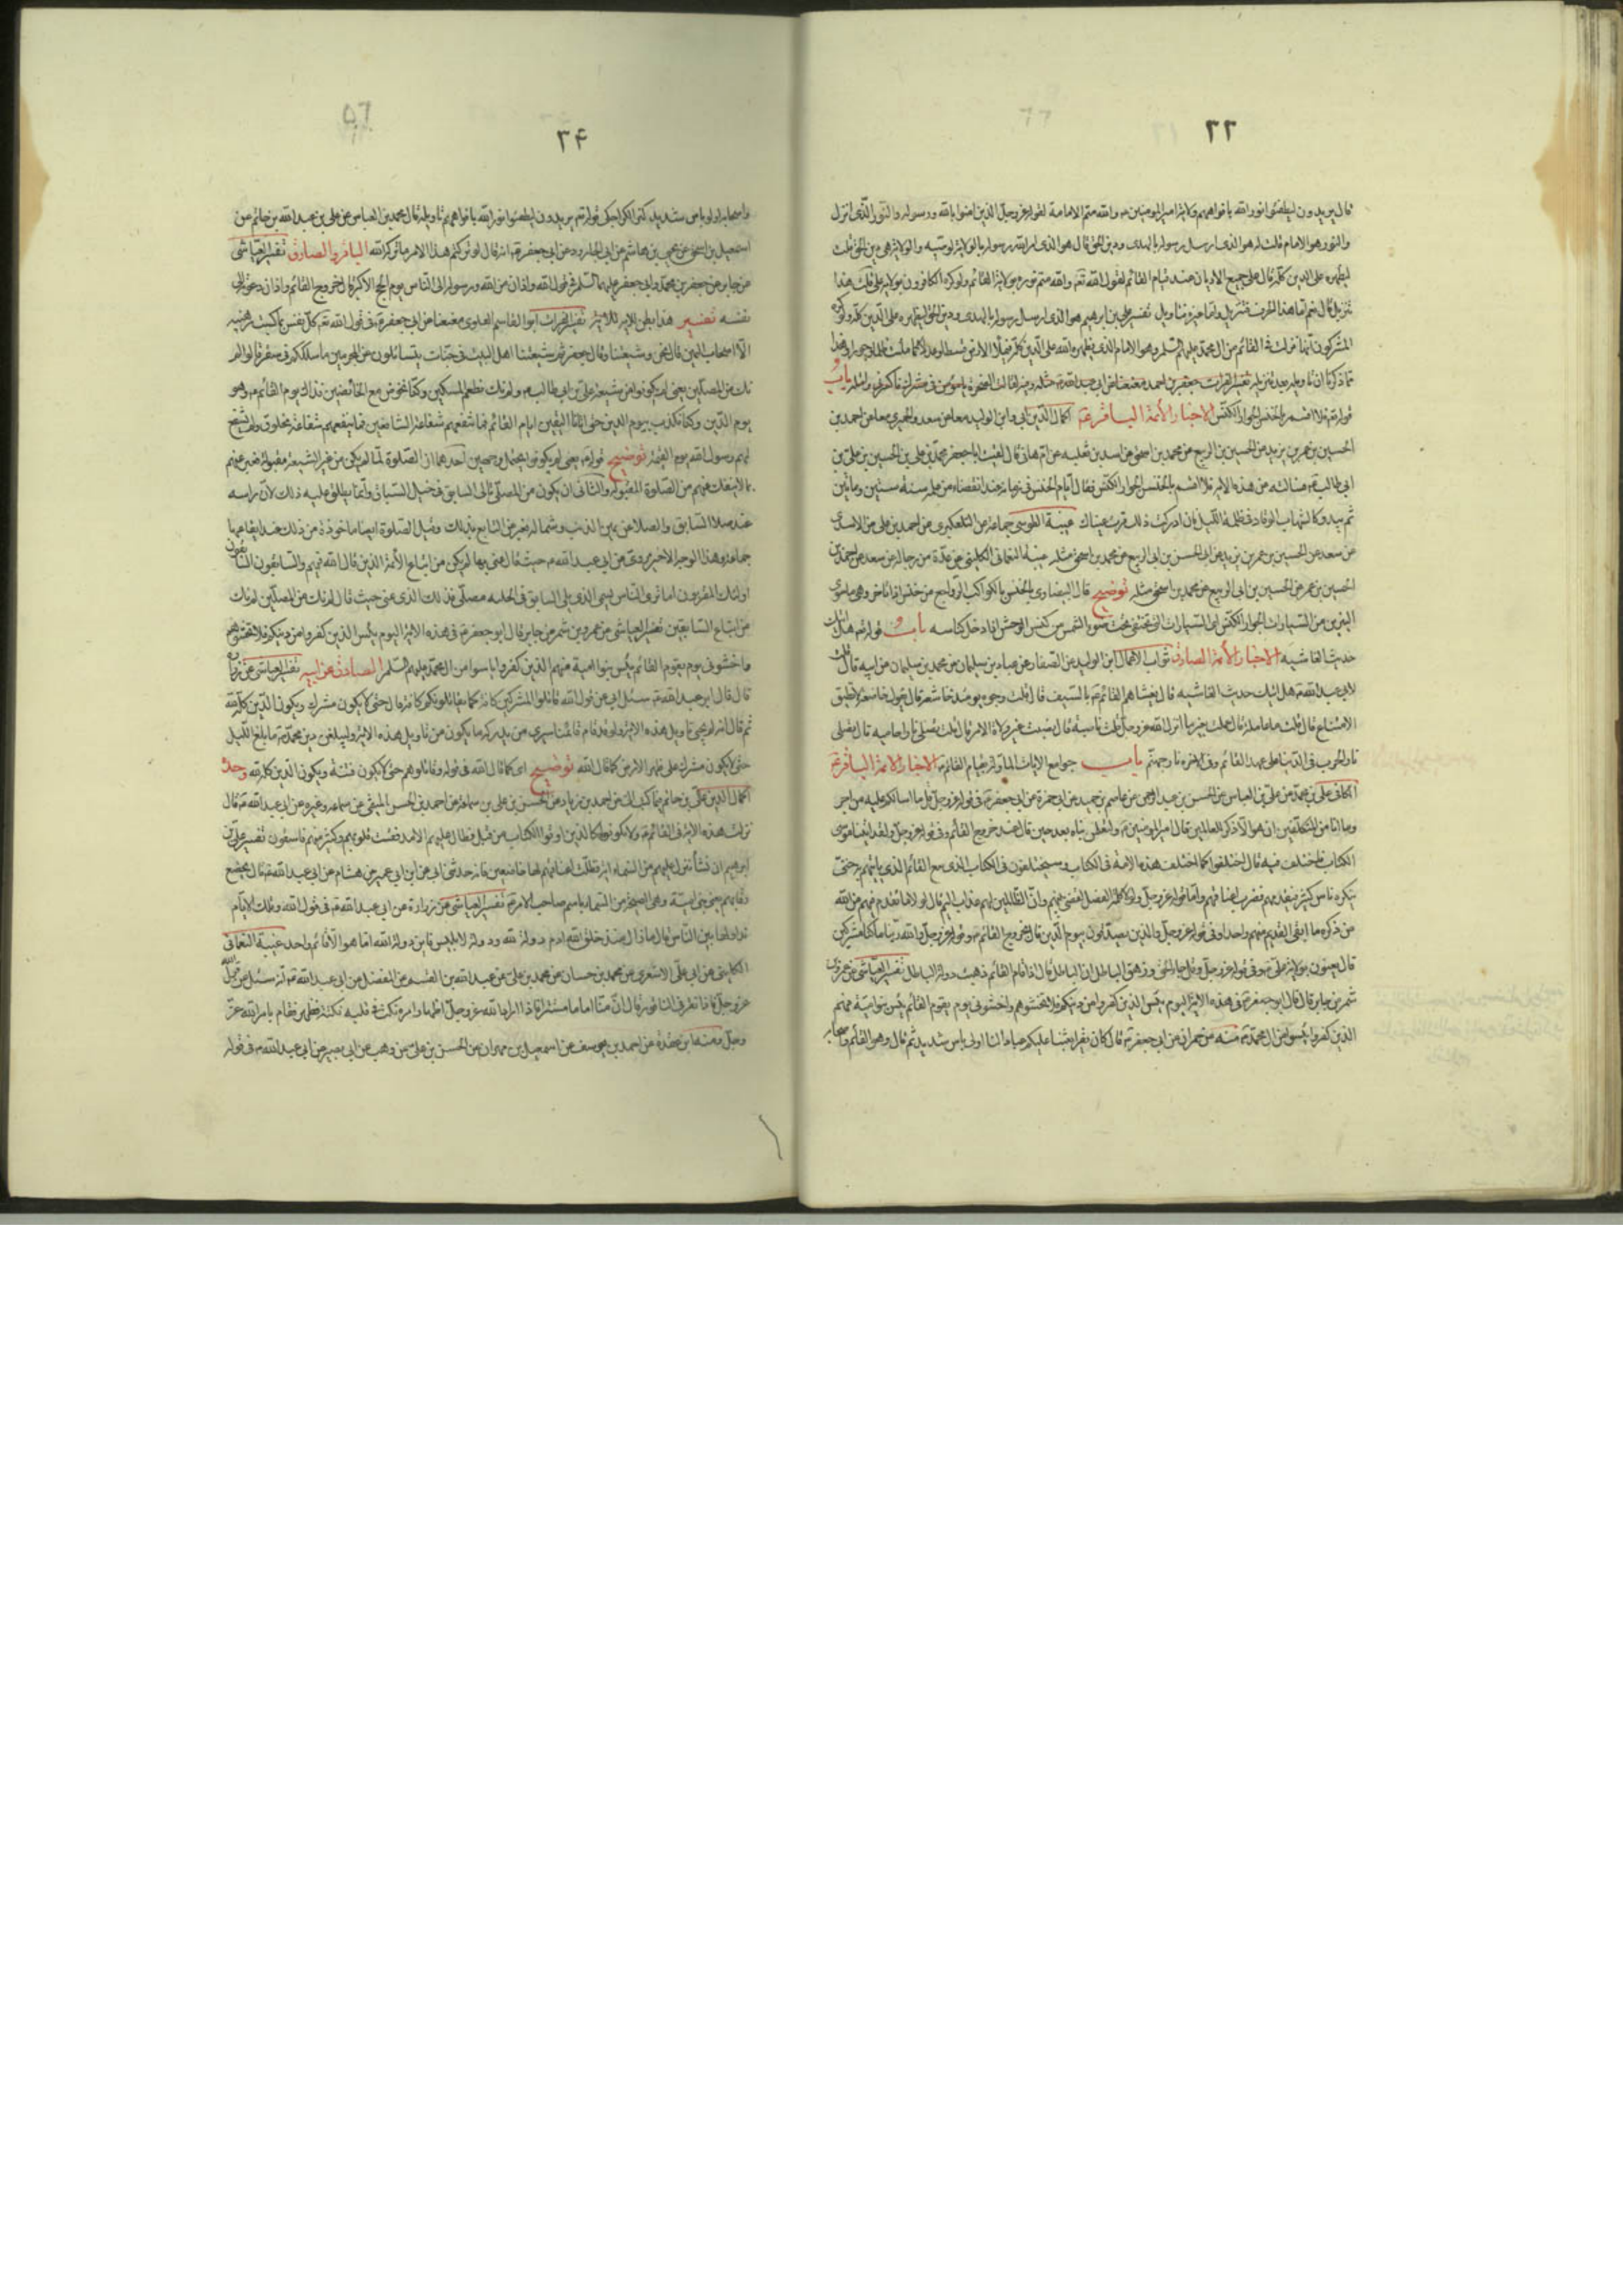 ۲۳
قال يريدون ليطفئوا نور الله بافواههم ولاية امير المؤمنين م والله متم الامامة لقوله عز وجل الذين امنوا بالله ورسوله والنور الذى انزل
والنور هو الامام قلت له هو الذى ارسل رسوله بالهدى ودين الحق قال هو الذى امر الله رسوله بالولاية لوصيه والولاية هى دين الحق قلت
ليظهره على الدين كله قال على جميع الاديان عند قيام القائم لقول الله تعم والله متم نوره بولاية القائم ولو كره الكافرون بولاية على قلت هذا
تنزيل قال نعم اما هذا الحرف فتنزيل واما غيره فتاويل تفسير على بن ابرهيم هو الذى ارسل رسوله بالهدى ودين الحق ليظهره على الدين كله ولو كره
المشركون انها نزلت فى القائم من ال محمد عليهم السلم وهو الامام الذى يظهره الله على الدين كله فيملأ الارض قسطا وعدلا كما ملئت ظلما وجورا وهذا
مما ذكرنا ان تاويله بعد تنزيله تفسير الفرات جعفر بن احمد معنعنا عن ابى عبد الله م مثله باب
قوله تعم فلا اقسم بالخنس الجوار الكنس الاخبار الأئمة الباقر م اكمال الدين ابى وابن الوليد معا عن سعد والحميرى معا عن احمد بن
الحسين بن عمر بن يزيد عن الحسين بن الربيع عن محمد بن اسحق عن اسد بن ثعلبه عن ام هانى قال لقيت ابا جعفر محمد بن على بن الحسين بن على بن
ابى طالب م فسالته عن هذه الاية فلا اقسم بالخنس الجوار الكنس فقال امام يخنس فى زمانه عند انقضاء من علمه سنة ستين ومائتين
ثم يبدو كالشهاب الوقاد فى ظلمة الليل فان ادركت ذلك قرت عيناك غيبة الطوسى جماعة عن التلعكبرى عن احمد بن على عن الاسدى
عن سعد عن الحسين بن عمر بن يزيد عن ابى الحسن بن ابى الربيع عن محمد بن اسحق مثله غيبة النعمانى الكلينى عن عدة من رجاله عن سعد عن احمد بن
الحسين بن عمر عن الحسين بن ابى الربيع عن محمد بن اسحق مثله توضيح قال البيضاوى بالخنس بالكواكب الرواجع من خنس اذا تاخر وهى ما سوى
النيرين من السيارات الجوار الكنس اى السيارات التى تختفى تحت ضوء الشمس من كنس الوحش اذا دخل كناسه باب قوله تعم هل اتيك
حديث الغاشيه الاخبار الأئمة الصادق ثواب الاعمال ابن الوليد عن الصفار عن عباد بن سليمان عن محمد بن سليمان عن ابيه قال قلت
لابى عبد الله م هل اتيك حديث الغاشيه قال يغشاهم القائم م بالسيف قال قلت وجوه يومئذ خاشعة قال يقول خاضعة لا تطيق
الامتناع قال قلت عاملة قال عملت بغير ما انزل الله عز وجل قلت ناصبة قال نصبت غير ولاة الامر قال قلت تصلى نارا حاميه قال تصلى
نار الحرب فى الدنيا على عهد القائم وفى الاخرة نار جهنم باب جوامع الايات الماولة بقيام القائم م الاخبار الأئمة الباقر م
الكافى على بن محمد عن على بن العباس عن الحسن بن عبد الرحمن عن عاصم بن حميد عن ابى حمزة عن ابى جعفر م فى قوله عز وجل قل ما اسالكم عليه من اجر
وما انا من المتكلفين ان هو الا ذكر للعالمين قال امير المؤمنين م ولتعلمن نباه بعد حين قال عند خروج القائم وفى قوله عز وجل ولقد اتينا موسى
الكتاب فاختلف فيه قال اختلفوا كما اختلف هذه الامة فى الكتاب وسيختلفون فى الكتاب الذى مع القائم الذى ياتيهم به حتى
ينكره ناس كثير فيقدمهم فيضرب اعناقهم واما قوله عز وجل ولولا كلمة الفصل لقضى بينهم وان الظالمين لهم عذاب اليم قال لولا ما تقدم فيهم من الله
من ذكره ما ابقى القائم منهم واحدا وفى قوله عز وجل والذين يصدقون بيوم الدين قال بخروج القائم م وقوله عز وجل والله ربنا ما كنا مشركين
قال يعنون بولاية على م وفى قوله عز وجل وقل جاء الحق وزهق الباطل ان الباطل قال اذا قام القائم ذهبت دولة الباطل تفسير العياشى عن عمرو بن
شمر بن جابر قال قال ابو جعفر م فى هذه الاية اليوم يئس الذين كفروا من دينكم فلا تخشوهم واخشونى يوم يقوم القائم يئس بنو امية فهم
الذين كفروا يئسوا من ال محمد م منه عن حمران عن ابى جعفر م قال كان يقرا بعثنا عليكم عبادا لنا اولى باس شديد ثم قال وهو القائم واصحابه
۲۴
واصحابه اولو باس شديد كنز الكراجكى قوله تعم يريدون ليطفئوا نور الله بافواههم تاويله قال محمد بن العباس عن على بن عبد الله بن حاتم عن
اسمعيل بن اسحق عن يحيى بن هاشم عن ابى الجارود عن ابى جعفر م انه قال لو تركتم هذا الامر ما تركه الله الباقر والصادق تفسير العياشى
عن جابر عن جعفر بن محمد وابى جعفر عليهما السلم فى قول الله واذان من الله ورسوله الى الناس يوم الحج الاكبر قال خروج القائم واذان دعوته الى
نفسه تفسير هذا بطن للاية تفسير الفرات ابو القاسم العلوى معنعنا عن ابى جعفر م فى قول الله تعم كل نفس بما كسبت رهينه
الا اصحاب اليمين قال نحن وشيعتنا وقال ابو جعفر ثم شيعتنا اهل البيت فى جنات يتسائلون عن المجرمين ما سلككم فى سقر قالوا لم
نك من المصلين يعنى لم يكونوا من شيعة على بن ابى طالب م ولم نك نطعم المسكين وكنا نخوض مع الخائضين فذاك يوم القائم م وهو
يوم الدين وكنا نكذب بيوم الدين حتى اتانا اليقين ايام القائم فما تنفعهم شفاعة الشافعين فما ينفعهم شفاعة مخلوق ولن يشفع
لهم رسول الله يوم القيمة توضيح قوله م يعنى لم يكونوا يحتمل وجهين احدهما ان الصلوة لما لم يكن من غير الشيعة مقبولة فعبر عنهم
بما لا ينفك عنهم من الصلوة المقبولة والثانى ان يكون من المصلى تالى السابق فى خيل السباق وانما يطلق عليه ذلك لان راسه
عند صلا السابق والصلا عن يمين الذنب وشماله فعبر عن التابع بذلك وقيل الصلوة ايضا ماخوذة من ذلك عند ايقاعها
جماعة وهذا الوجه الاخير روى عن ابى عبد الله م حيث قال عنى بها لم نك من اتباع الأئمة الذين قال الله فيهم والسابقون السابقون
اولئك المقربون اما ترى الناس يسمى الذى يلى السابق فى الحلبه مصلى فذلك الذى عنى حيث قال لم نك من المصلين لم نك
من اتباع السابقين تفسير العياشى عن عمرو بن شمر عن جابر قال ابو جعفر م فى هذه الاية اليوم يئس الذين كفروا من دينكم فلا تخشوهم
واخشونى يوم يقوم القائم يئس بنو امية فهم الذين كفروا يئسوا من ال محمد عليهم السلم الصادق عن ابيه تفسير العياشى عن زرارة
قال قال ابو عبد الله م سئل ابى عن قول الله قاتلوا المشركين كافة كما يقاتلونكم كافة قال حتى لا يكون مشرك ويكون الدين كله لله
ثم قال انه لم يجئ تاويل هذه الاية ولو قد قام قائمنا سيرى من يدركه ما يكون من تاويل هذه الاية وليبلغن دين محمد م ما بلغ الليل
حتى لا يكون مشرك على ظهر الارض كما قال الله توضيح اى كما قال الله فى قوله وقاتلوهم حتى لا تكون فتنة ويكون الدين كله لله وحده
اكمال الدين على بن حاتم فيما كتب الى عن احمد بن زياد عن الحسن بن على بن سماعة عن احمد بن الحسن الميثمى عن سماعة وغيره عن ابى عبد الله م قال
نزلت هذه الاية فى القائم م ولا يكونوا كالذين اوتوا الكتاب من قبل فطال عليهم الامد فقست قلوبهم وكثير منهم فاسقون تفسير على بن
ابرهيم ان نشأ ننزل عليهم من السماء اية فظلت اعناقهم لها خاضعين فانه حدثنى ابى عن ابن ابى عمير عن هشام عن ابى عبد الله م قال تخضع
رقابهم يعنى بنى امية وهى الصيحة من السماء باسم صاحب الامر م تفسير العياشى عن زرارة عن ابى عبد الله م فى قول الله وتلك الايام
نداولها بين الناس قال ما زال منذ خلق الله ادم دولة لله ودولة لابليس فاين دولة الله اما هو الا قائم واحد غيبة النعمانى
الكلينى عن ابى على الاشعرى عن محمد بن حسان عن محمد بن على عن عبد الله بن القسم عن المفضل عن ابى عبد الله م انه سئل عن قول الله
عز وجل فاذا نقر فى الناقور قال ان منا اماما مستترا فاذا اراد الله عز وجل اظهار امره نكت فى قلبه نكتة فظهر فقام بامر الله عز
وجل ومنه ابن عقدة عن احمد بن يوسف عن اسمعيل بن مهران عن الحسن بن على عن وهب عن ابى بصير عن ابى عبد الله م فى قوله